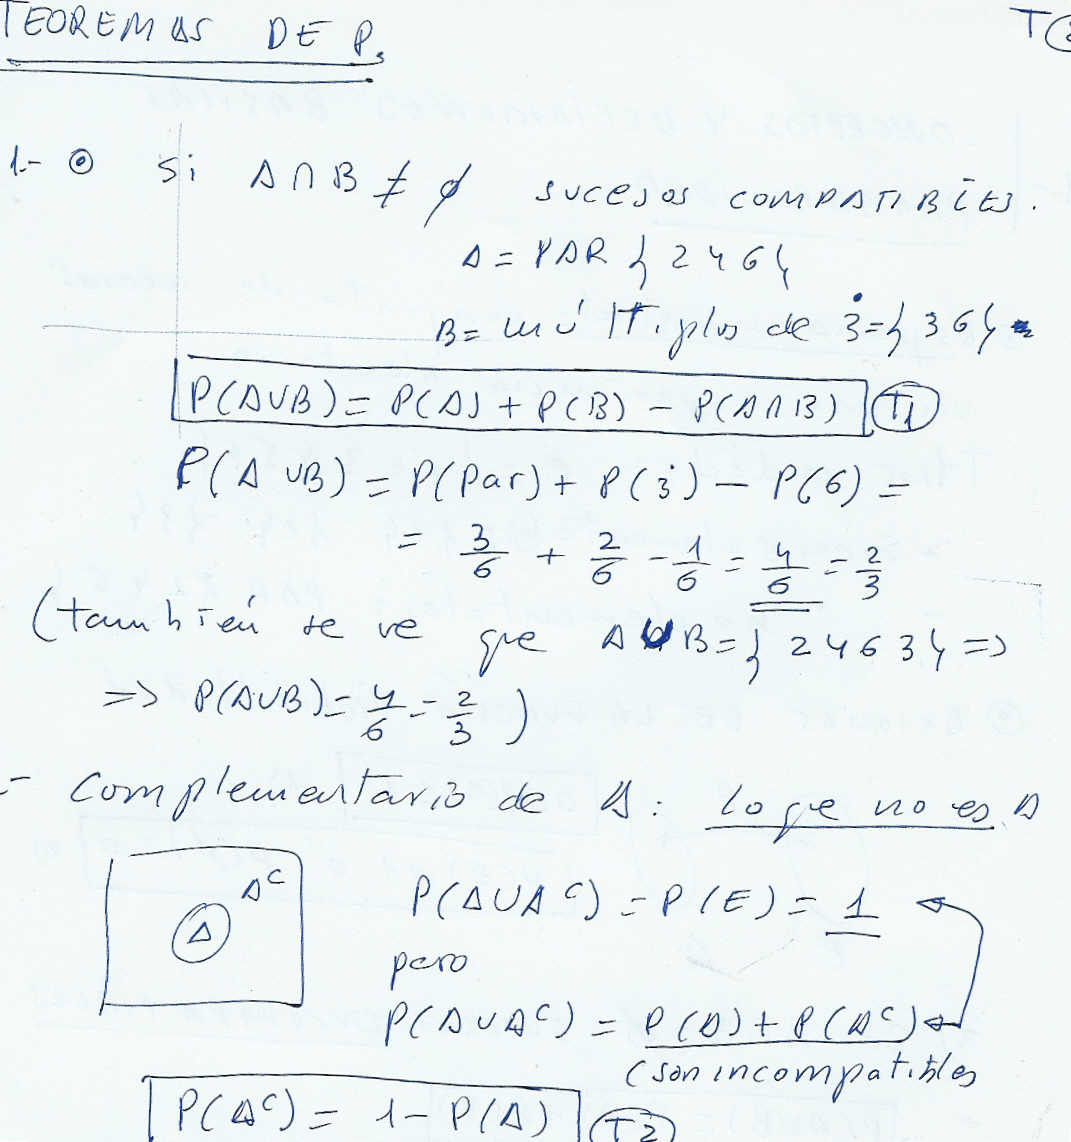 TEOREMAS DE P.
T(
1.- ⊙ Si A∩B ≠ ∅ sucesos COMPATIBLES.
A = PAR { 2 4 6 }
B = múltiplos de 3̇ = { 3 6 }
P(A∪B) = P(A) + P(B) − P(A∩B) T1
P(A∪B) = P(Par) + P(3̇) − P(6) =
= 3/6 + 2/6 − 1/6 = 4/6 = 2/3
(también se ve que A∪B = { 2 4 6 3 } =>
=> P(A∪B) = 4/6 = 2/3 )
- Complementario de A : lo que no es A
A^C
A
P(A∪A^C) = P(E) = 1
pero
P(A∪A^C) = P(A) + P(A^C)
(son incompatibles
P(A^C) = 1 − P(A) T2